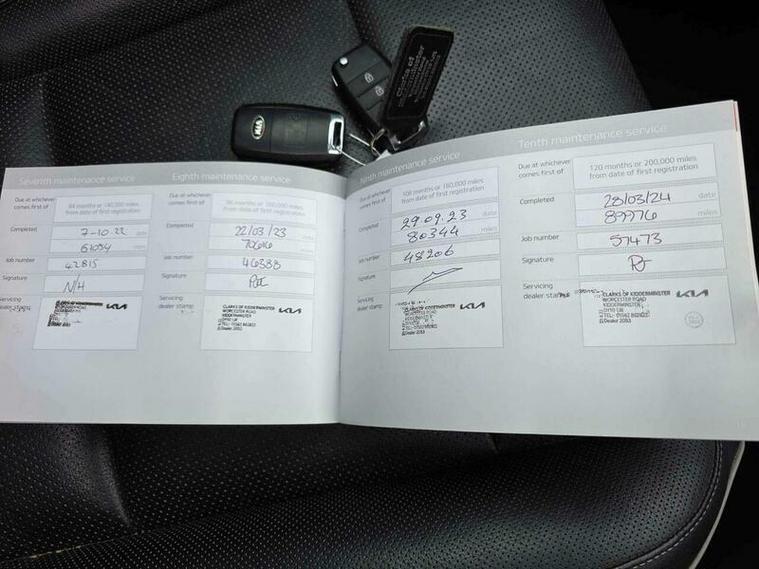 KIA
Clarks of
Kidderminster
Seventh maintenance service
Due at whichever
comes first of
84 months or 140,000 miles
from date of first registration
Completed
7-10-22 date
61094 miles
Job number
42815
Signature
N/H
Servicing
dealer stamp
KIA
Eighth maintenance service
Due at whichever
comes first of
96 months or 160,000 miles
from date of first registration
Completed
22/03/23 date
70606 miles
Job number
46388
Signature
Servicing
dealer stamp
CLARKS OF KIDDERMINSTER
WORCESTER ROAD
KIDDERMINSTER
KIA
Ninth maintenance service
Due at whichever
comes first of
108 months or 180,000 miles
from date of first registration
Completed
29.09.23 date
80344 miles
Job number
48206
Signature
Servicing
dealer stamp
CLARKS OF KIDDERMINSTER
WORCESTER ROAD
KIDDERMINSTER
KIA
Tenth maintenance service
Due at whichever
comes first of
120 months or 200,000 miles
from date of first registration
Completed
28/03/24 date
89976 miles
Job number
57473
Signature
Servicing
dealer stamp
CLARKS OF KIDDERMINSTER
WORCESTER ROAD
KIDDERMINSTER
KIA